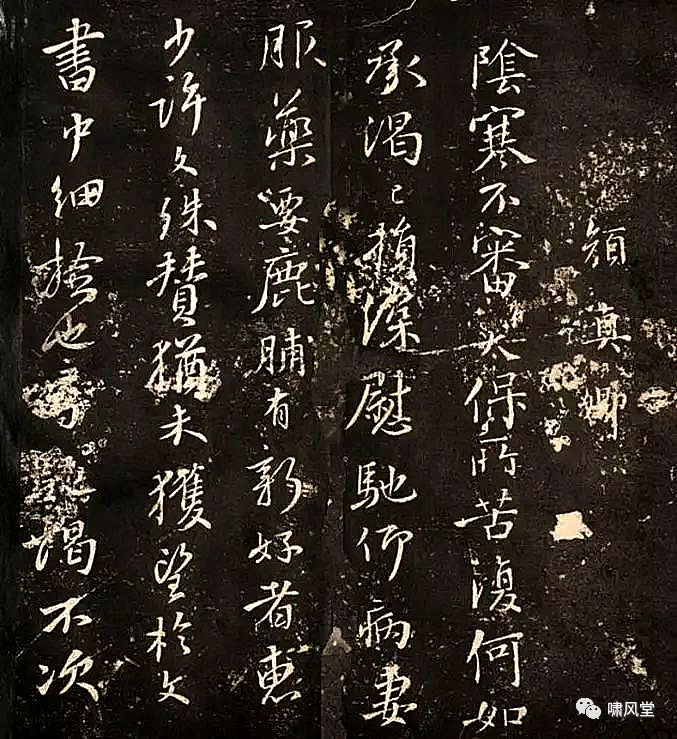 顏真卿
陰寒不審太保所苦復何如
承渴已損深慰馳仰病妻
服藥要鹿脯有新好者惠
少許文殊贊猶未獲望於文
書中細撿也不次
啸风堂